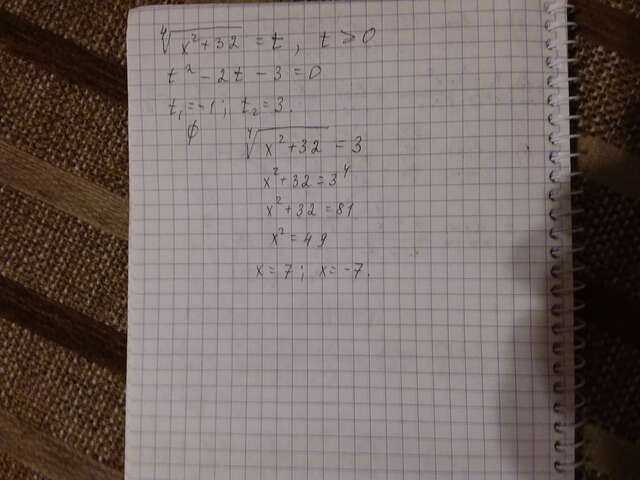 ⁴√(x²+32) = t, t > 0
t² - 2t - 3 = 0
t₁ = -1; t₂ = 3.
∅ ⁴√(x²+32) = 3
x² + 32 = 3⁴
x² + 32 = 81
x² = 49
x = 7; x = -7.